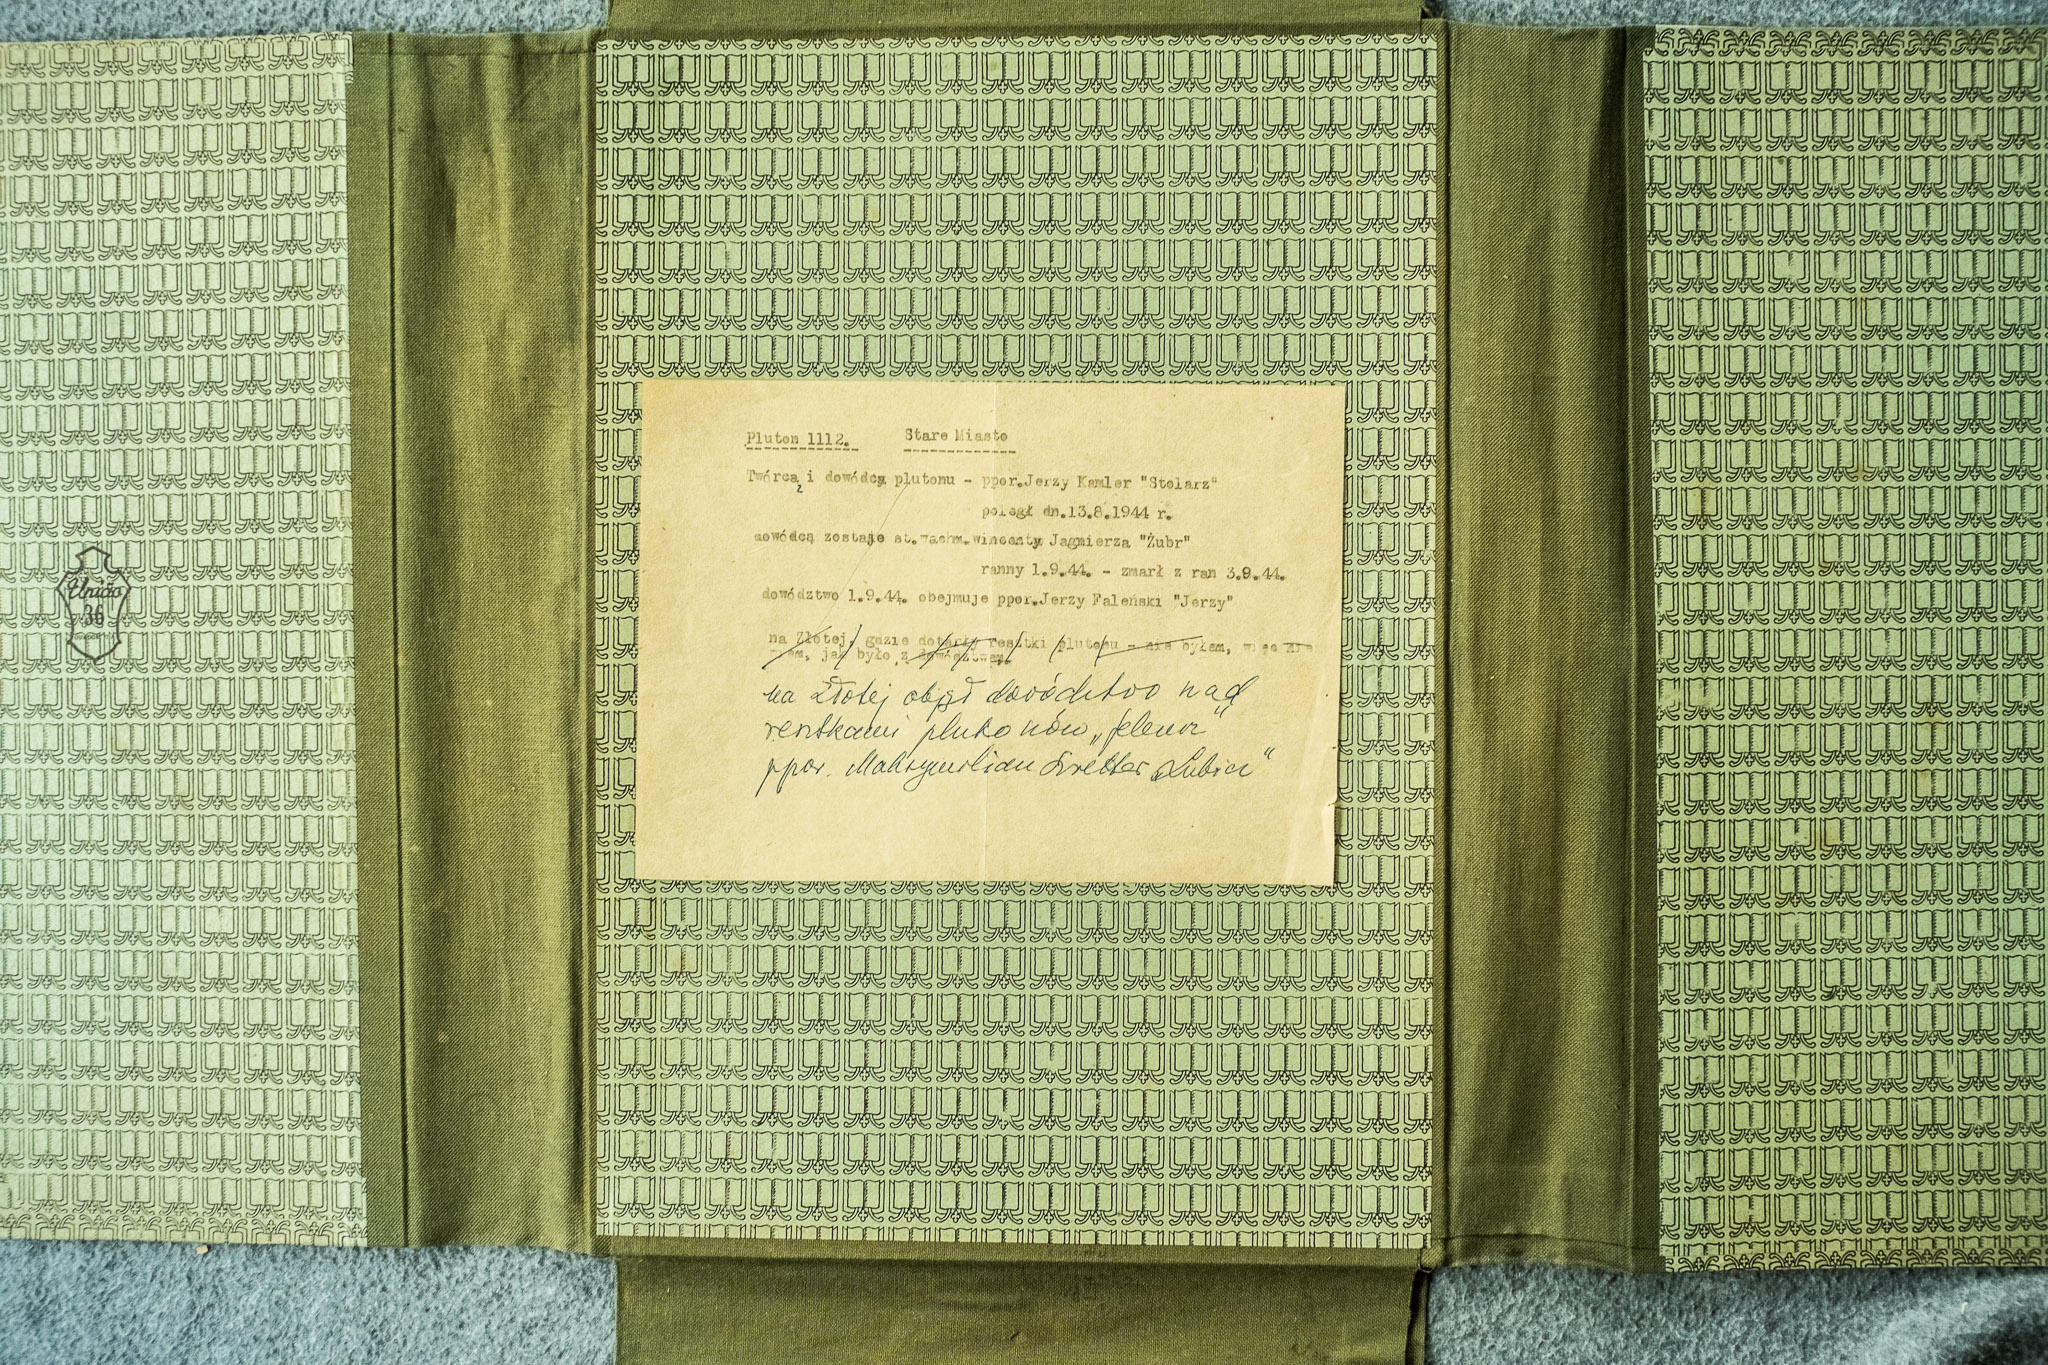 Pluton 1112. Stare Miasto
Twórcą i dowódcą plutonu - ppor.Jerzy Kamler "Stolarz"
poległ dn.13.8.1944 r.
dowódcą zostaje st.wachm.wincenty Jagmierza "Żubr"
ranny 1.9.44. - zmarł z ran 3.9.44.
dowództwo 1.9.44. obejmuje ppor.Jerzy Faleński "Jerzy"
na Złotej, gdzie dotarły resztki plutonu - nie byłem, więc nie
wiem, jak było z dowództwem.
na Złotej objął dowództwo nad
resztkami plutonów „Jelenia"
ppor. Maksymilian "Lubicz"
Unida
36